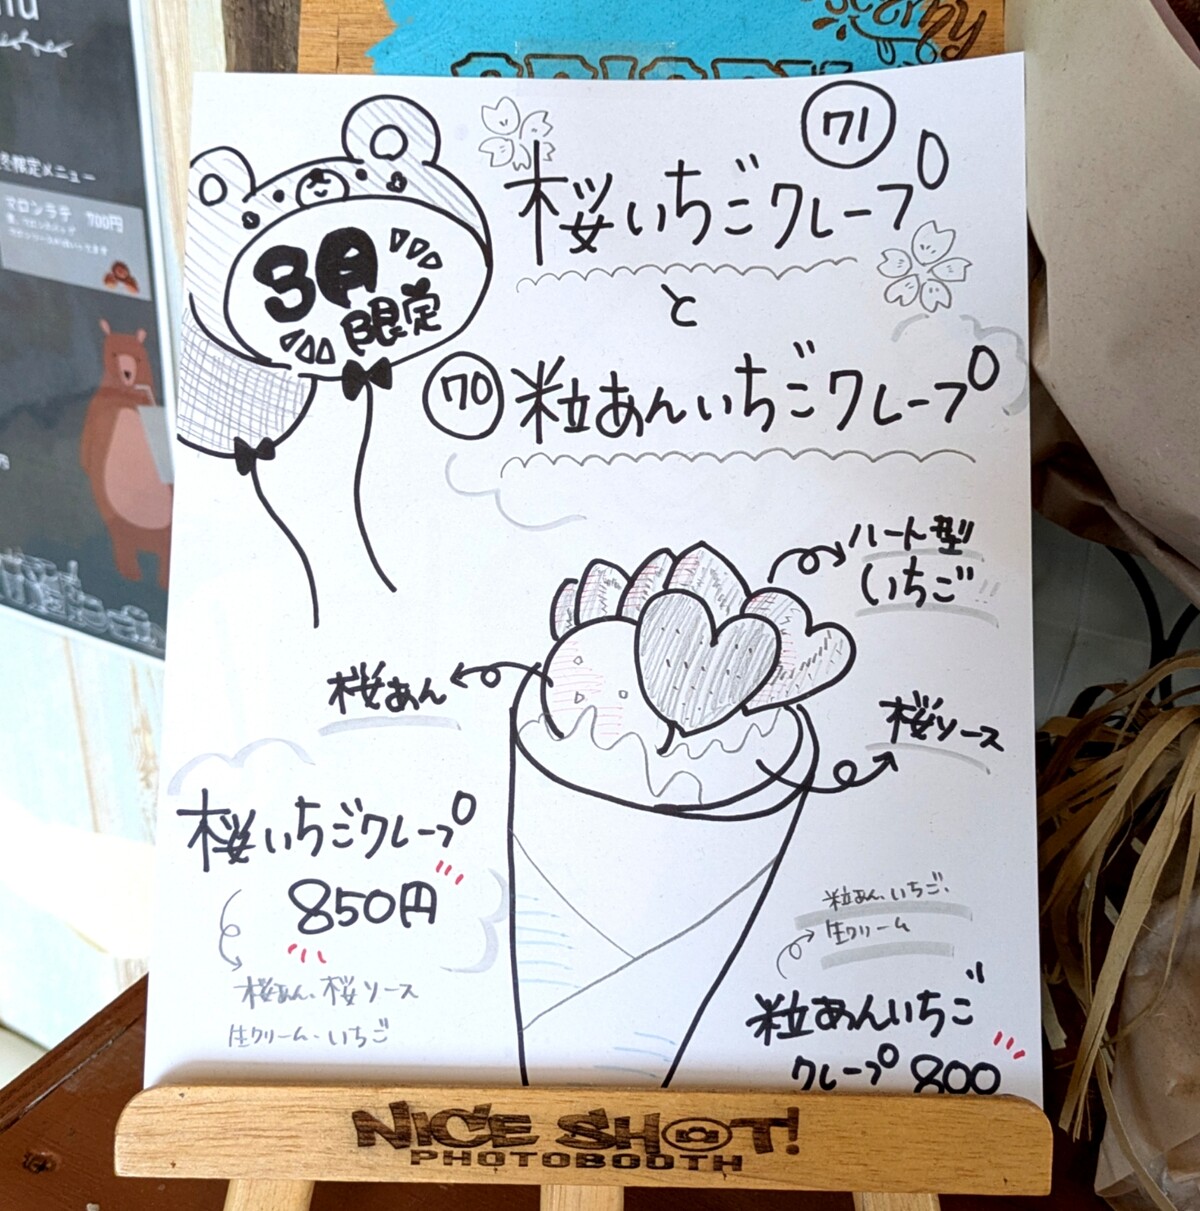 冬限定メニュー
マロンラテ 700円
3月
限定
71
桜いちごクレープ
と
70 粒あんいちごクレープ
ハート型
いちご!!
桜あん
桜ソース
桜いちごクレープ
850円
桜あん、桜ソース
生クリーム・いちご
粒あん、いちご、
生クリーム
粒あんいちご
クレープ 800
NICE SHOT!
PHOTOBOOTH